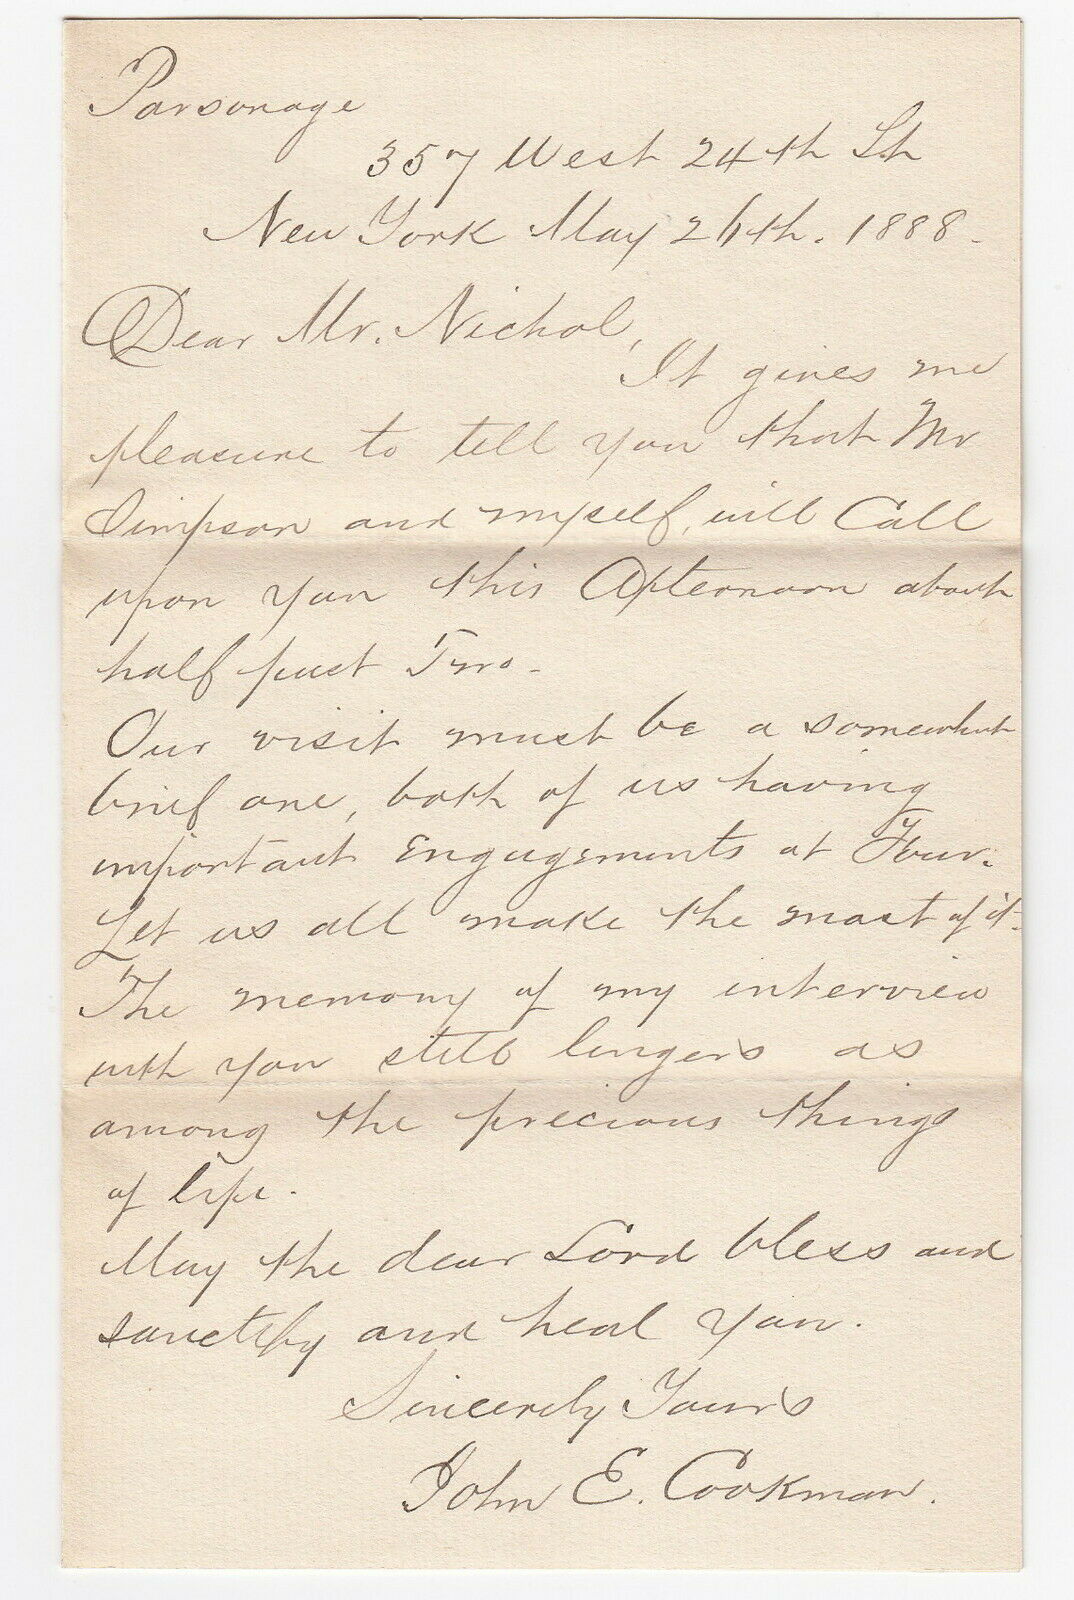 Parsonage
357 West 24th St
New York May 26th. 1888.
Dear Mr. Nichol,
It gives me
pleasure to tell you that Mr
Simpson and myself, will Call
upon you this Afternoon about
half past Two.
Our visit must be a somewhat
brief one, both of us having
important Engagements at Four.
Let us all make the most of it.
The memory of my interview
with you still lingers as
among the precious things
of life.
May the dear Lord bless and
sanctify and heal you.
Sincerely Yours
John E. Cookman.